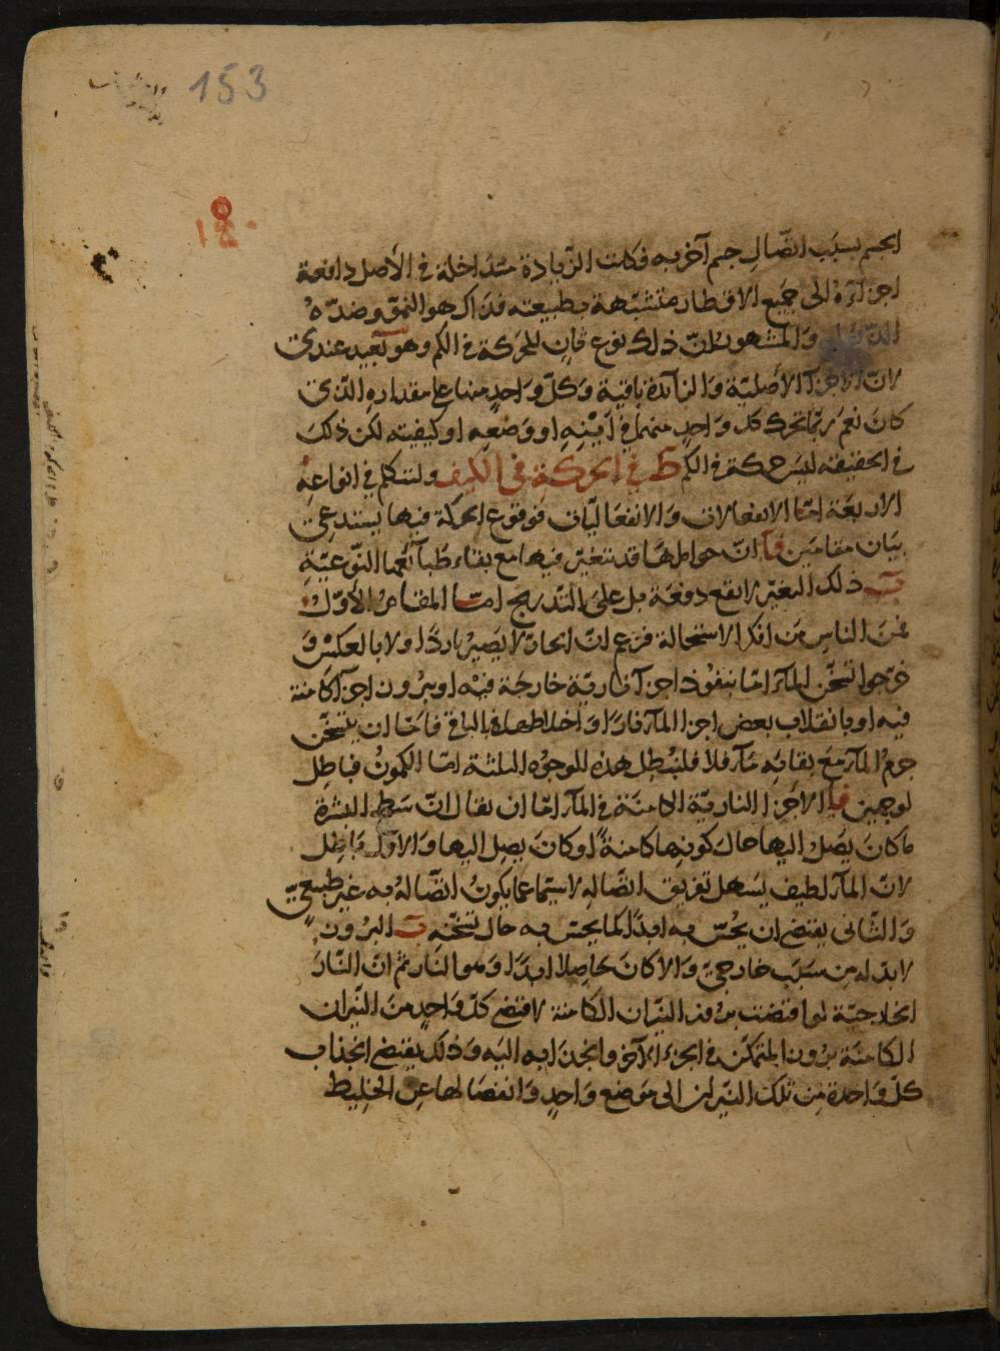 153
الجسم بسبب اتصال جسم آخر به فكانت الزيادة متداخلة في الأصل دافعة
اجزآئه الى جميع الاقطار متشبهة بطبيعته فذاك هو النمو وضده
الذبول والمشهور ان ذلك نوع ثان للحركة في الكم وهو بعيد عندي
لان الاجزآ الأصلية والزائدة باقية وكل واحد منها على مقداره الذي
كان نعم ربما تحرك كل واحد منهما في اينه او وضعه او كيفيته لكن ذلك
في الحقيقة ليس حركة في الكم ط في الحركة في الكيف ولنتكلم في انواعه
الاربعة امّا الانفعالات والانفعاليات فوقوع الحركة فيها يستدعي
بيان مقامين آ ان حواملها قد تتغير فيها مع بقاء طبآئعها النوعية
ب ذلك التغير لا يقع دفعة بل على التدريج امّا المقام الأول
فمن الناس من انكر الاستحالة فزعم ان الحار لا يصير باردا ولا بالعكس و
زعموا تسخن المآء امّا بنفوذ اجزآ نارية خارجة فيه او ببروز اجزآ كامنة
فيه او بانقلاب بعض اجزا المآء نارا واختلاطها بالباقي فامّا ان يتسخن
جرم المآء مع بقائه مآء فلا فلنبطل هذه الوجوه الثلثة امّا الكمون فباطل
لوجهين آ الاجزا النارية الكامنة في المآء امّا ان يقال ان سطح البشرة
ما كان يصل اليها حال كونها كامنة او كان يصل اليها والاول باطل
لان المآء لطيف يسهل تفريق اتصاله لاسيما عما يكون اتصاله به غير طبيعي
والثاني يقتضي ان يحس به ابدا كما يحس به حال تسخنه ب البروز
لا بد له من سبب خارجي والا كان حاصلا ابدا وهو النار ثم ان النار
الخارجية لو اقتضت بروز النيران الكامنة لاقتضى كل واحد من النيران
الكامنة بروز المتمكن في الجزء الآخر وانجذابه اليه وذلك يقتضي انجذاب
كل واحدة من تلك النيران الى موضع واحد وانفصالها عن الخليط